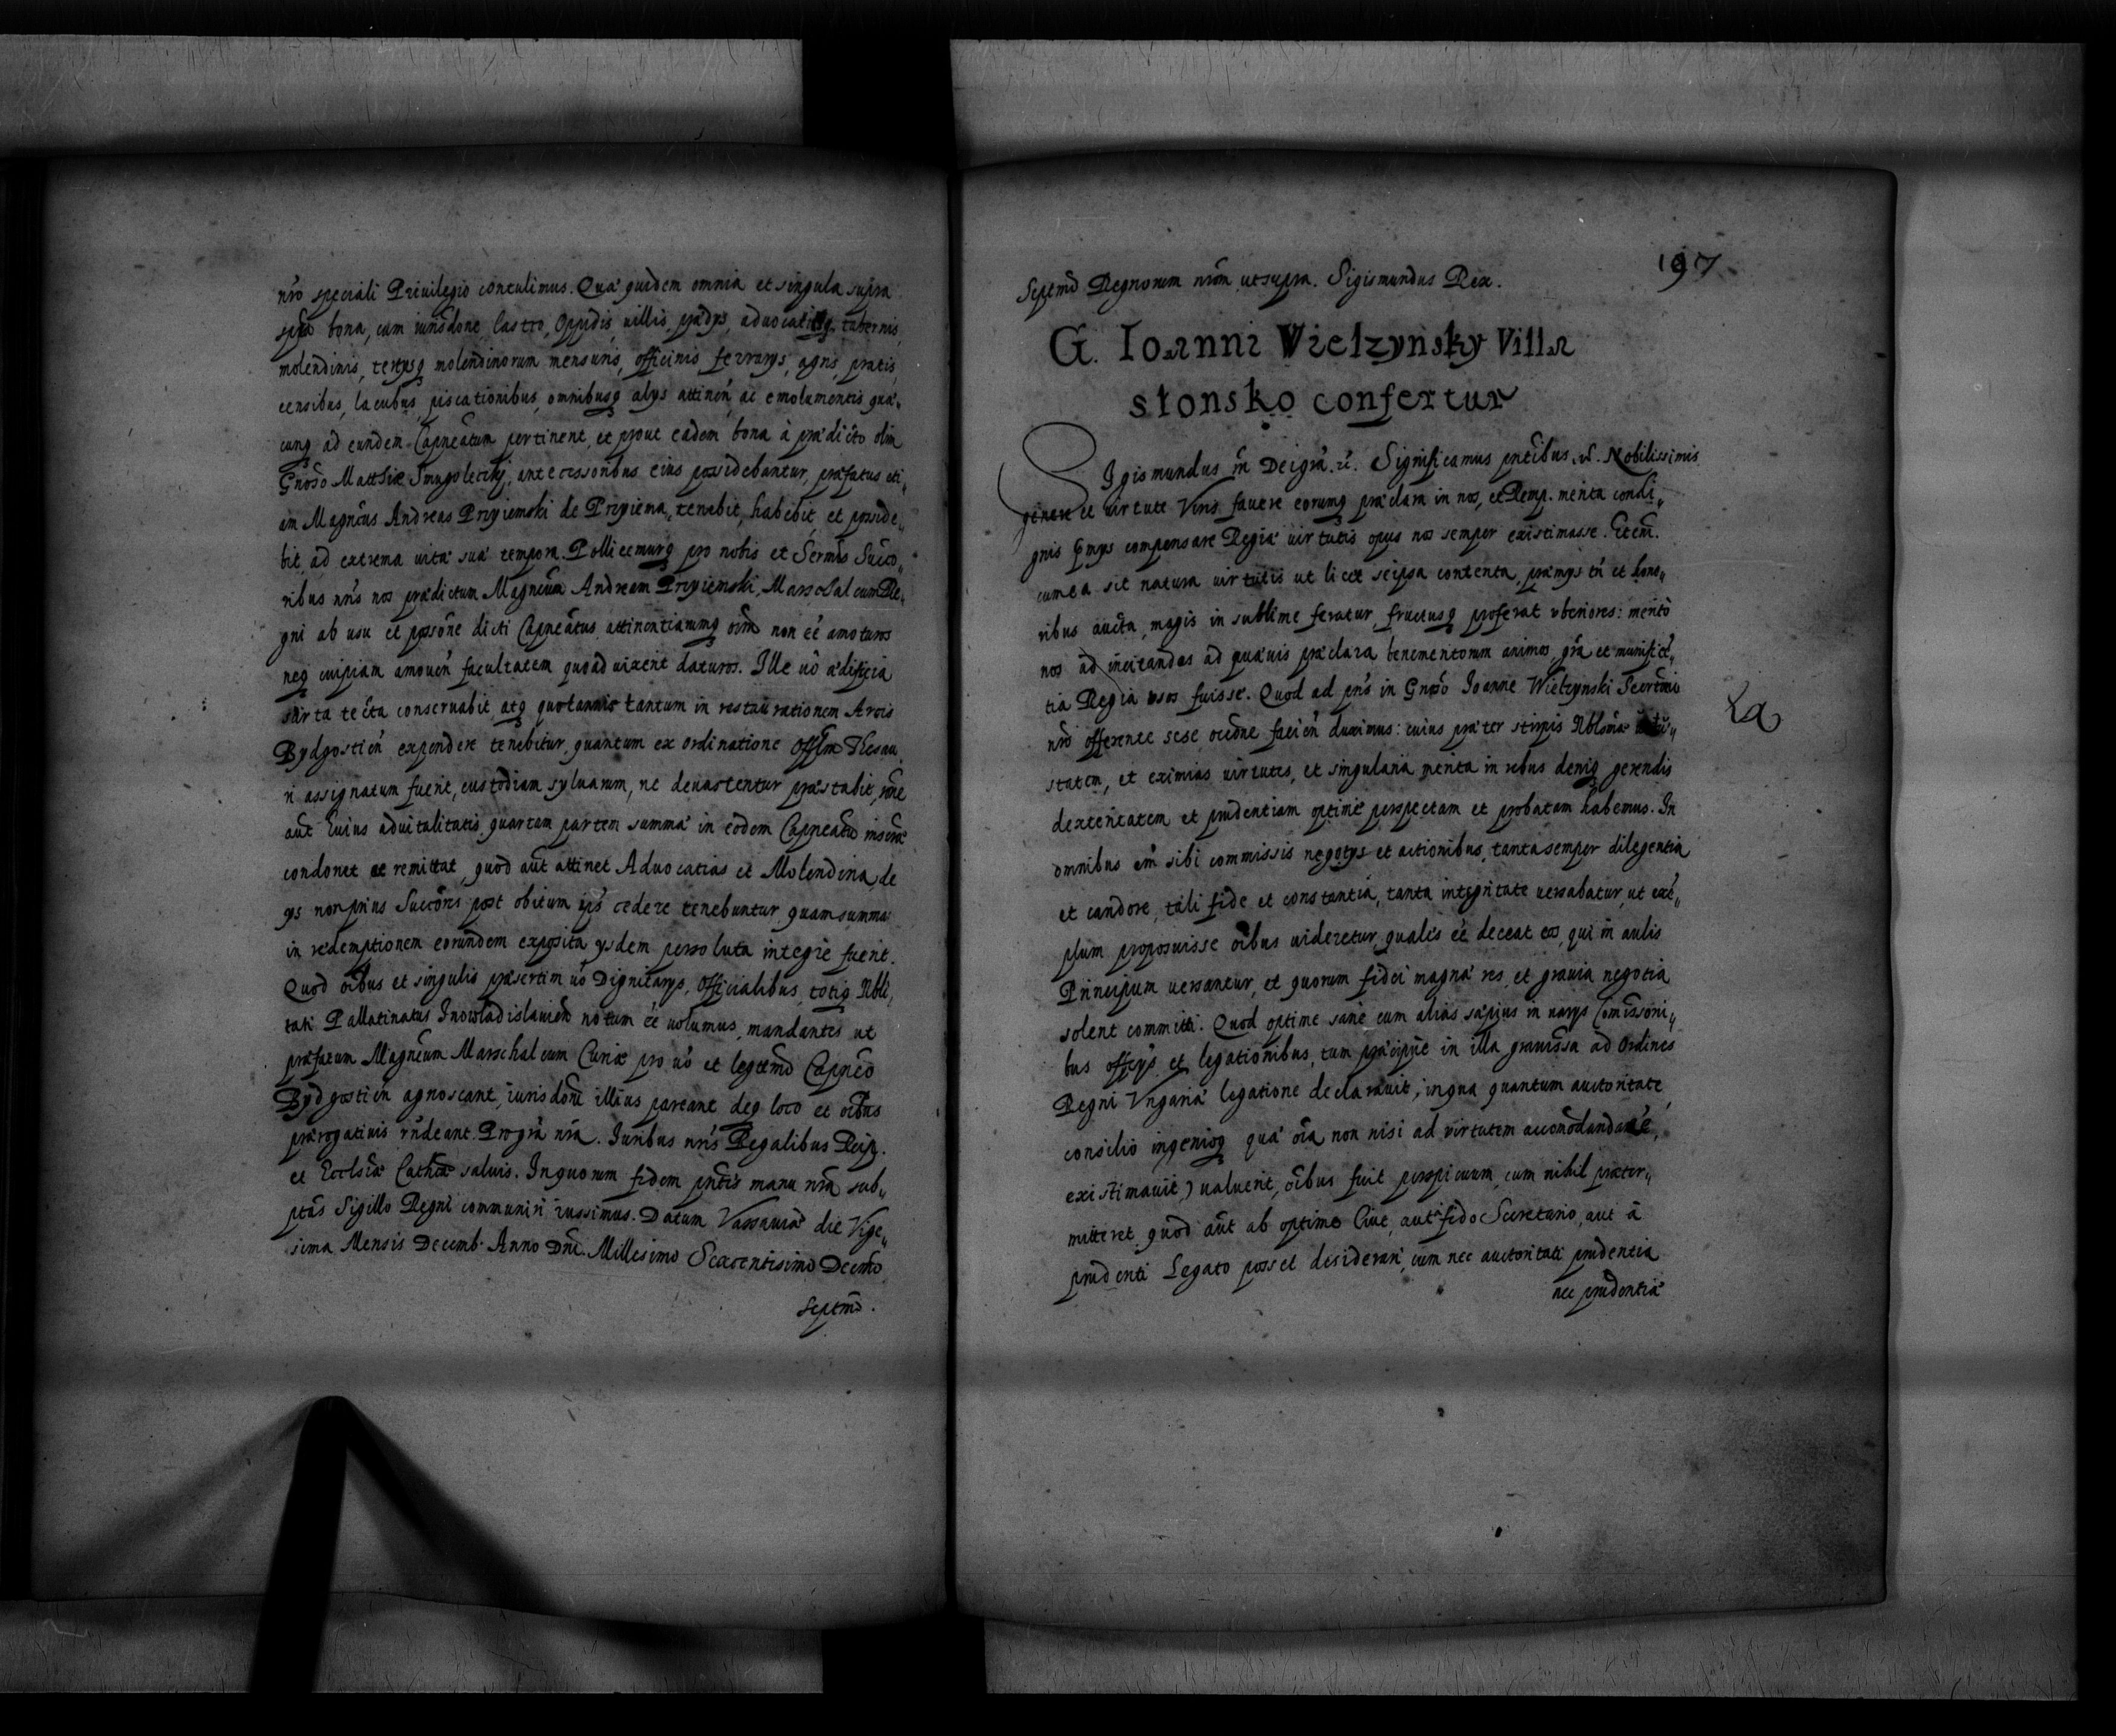 nr̃o speciali Priuilegio contulimus. Quæ quidem omnia et singula supra
spta bona, cum iurisdone, Castro, Oppidis, uillis, prædys, aduocatijsq, tabernis,
molendinis, tertysq molendinorum mensuris, officinis ferrarys, agris, pratis,
censibus, lacubus, piscationibus, omnibusq alys attinen̄ ac emolumentis quæ„
cunq ad eundem Capneatum pertinent, et prout eadem bona à prædicto olim
Gnoso Matthia Smogolecky, antecessoribus eius possidebantur, præfatus eti„
am Magncus Andreas Pryiemski de Pryiema, tenebit, habebit, et posside„
bit, ad extrema uitæ suæ tempora. Pollicemurq pro nobis et Sermis Succo„
ribus nris nos prædictum Magncum Andream Pryiemski, Marschalcum Re„
gni ab usu et possone dicti Capneatus attinentiarumq oim non eé amoturos
neq cuipiam amouen̄ facultatem quoad uixerit daturos. Ille uo ædificia
sarta tecta conseruabit atq quotannis tantum in restaurationem Arcis
Bydgostien̄ expendere tenebitur, quantum ex ordinatione Offlm Thesau
ri assignatum fuerit, custodiam syluarum, ne deuastentur præstabit, rõne
aut huius aduitalitatis quartam partem summæ in eodem Capneatu inscriæ
condonet ac remittat, quod aut attinet Aduocatias et Molendina, de
ys non prius Succõris post obitum ips cedere tenebuntur, quam summa
in redemptionem eorundem exposita ysdem persoluta integre fuerit.
Quod oibus et singulis præsertim uo Dignitarys, Officialibus, totiq Nbli„
tati Pallatinatus Inowladislauien̄ notum eé uolumus, mandantes ut
præfatum Magncum Marschalcum Curiæ pro uo et legtmo Capneo
Bydgostien̄ agnoscant, iurisdoni illius pareant deq loco et oibus
prærogatiuis rñdeant. Pro gra nra. Iuribus nris Regalibus Reip.
et Ecclsiæ Cathcæ saluis. In quorum fidem pntes manu nra sub„
ptas Sigillo Regni communiri iussimus. Datum Varsauiæ die Vige„
sima Mensis Decemb. Anno Dni. Millesimo Sexcentisimo Decimo
Septmo.
197
Septmo Regnorum nrõm ut supra. Sigismundus Rex.
G. Ioanni Wielzynsky Villa
słonsko confertur
Sigismundus 3us Dei gra. &. Significamus pntibus &. Nobilissimis
genere et uirtute Viris fauere eorumq præclara in nos, et Remp. merita condi„
gnis pmys compensare Regiæ uirtutis opus nos semper existimasse. Etem.
cum ea sit natura uirtutis ut licet seipsa contenta, præmys tn̄ et hono„
ribus aucta, magis in sublime feratur, fructusq proferat vberiores: merito
nos ad incitandos ad quæuis præclara benemeritorum animos, gra et munificé„
tia Regia usos fuisse. Quod ad pns in Gnoso Ioanne Wielzynski Secrtrio
La
nro offerente sese occone facien̄ duximus: cuius præter stirpis Nblomæ uetu„
statem, et eximias uirtutes, et singularia merita in rebus deniq gerendis
dexteritatem et prudentiam optime perspectam et probatam habemus. In
omnibus em̄ sibi commissis negotys et actionibus, tanta semper diligentia
et candore, tali fide et constantia, tanta integritate uersabatur, ut exé„
plum proposuisse oibus uideretur, qualis eé deceat eos, qui in aulis
Principum uersantur, et quorum fidei magnæ res, et grauia negotia
solent committi. Quod optime sane cum alias sæpius in uarys Comissoni„
bus offcys et legationibus, tum præcipue in illa grauissa ad Ordines
Regni Vngariæ legatione declarauit; in qua quantum auctoritate,
consilio ingenioq quæ oia non nisi ad virtutem accomodanda eé,
existimauit,) ualuerit, oibus fuit perspicuum, cum nihil præter„
mitteret quod aut ab optimo Ciue, aut fido Secretario, aut à
prudenti Legato posset desiderari, cum nec auctoritati prudentia
nec prudentiæ